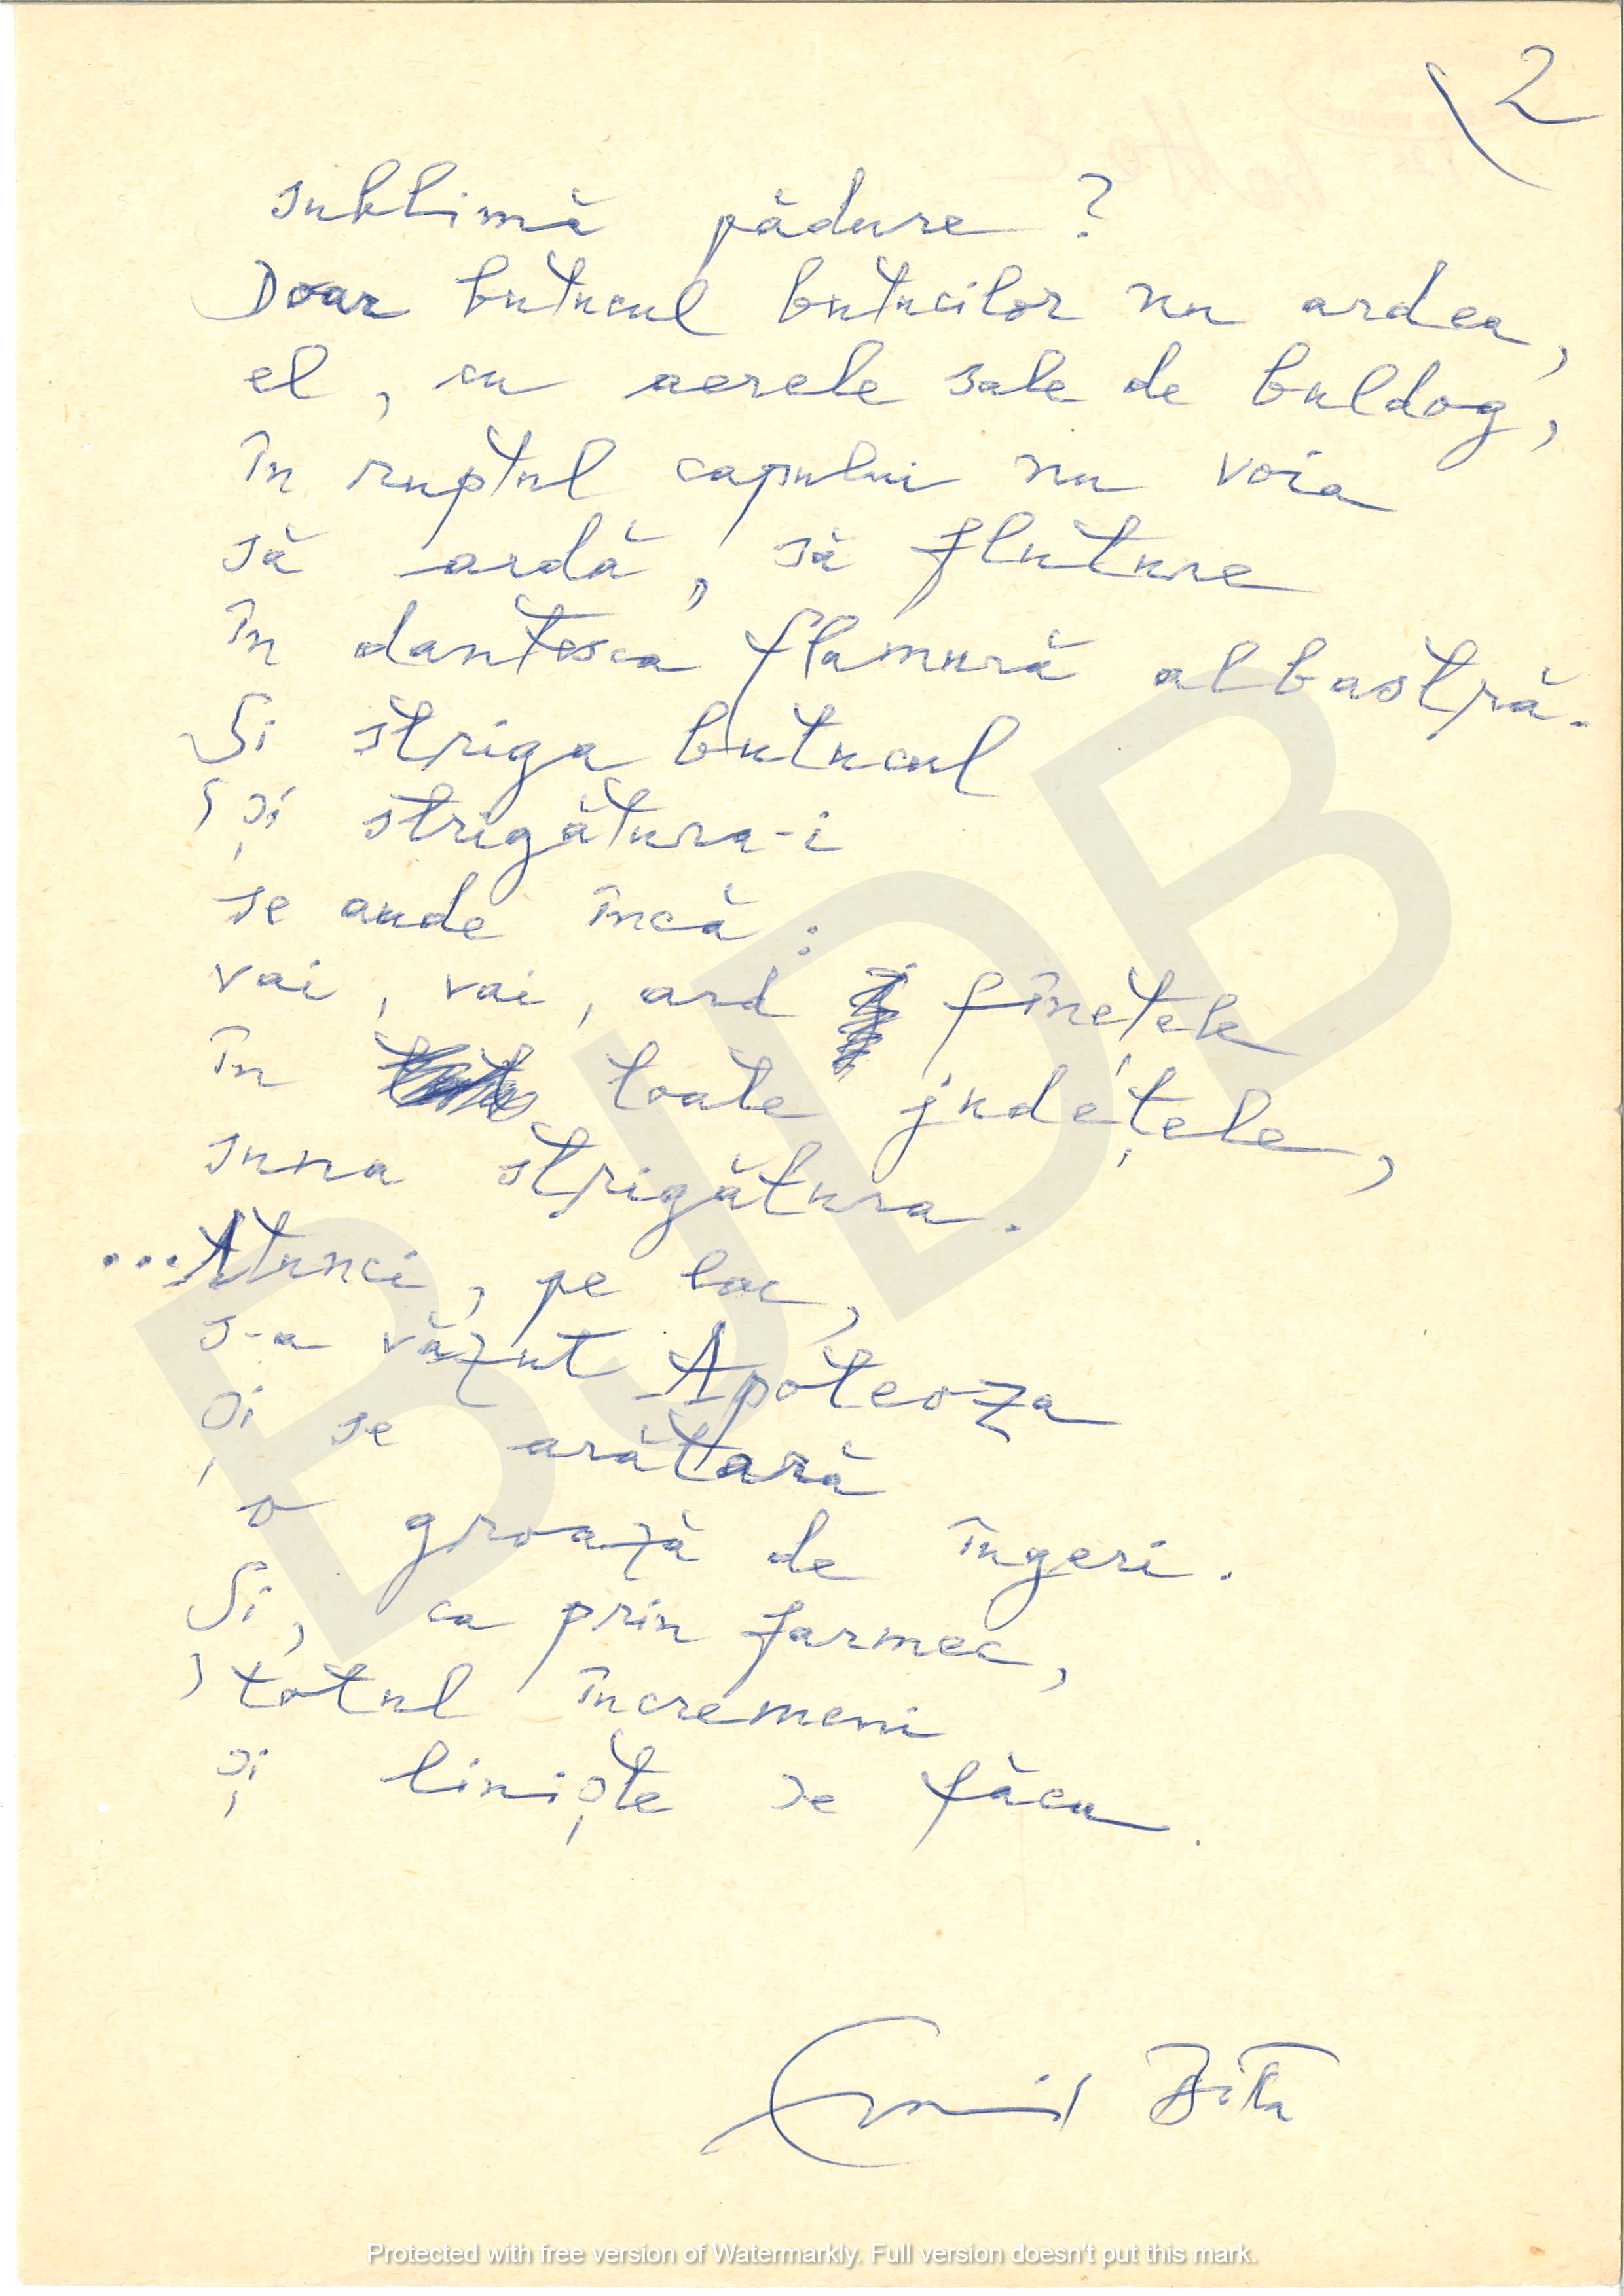 2
sublimă pădure ?
Doar butucul butucilor nu ardea,
el, cu aerele sale de buldog,
în ruptul capului nu voia
să ardă, să fluture
în dantesca flamură albastră.
Și striga butucul
și strigătura-i
se aude încă :
vai, vai, ard fînețele
în toate județele,
suna strigătura.
...Atunci, pe loc,
s-a văzut Apoteoza
și se arătară
o groază de îngeri.
Și, ca prin farmec,
totul încremeni
și liniște se făcu.
Emil
BJDB
Protected with free version of Watermarkly. Full version doesn't put this mark.